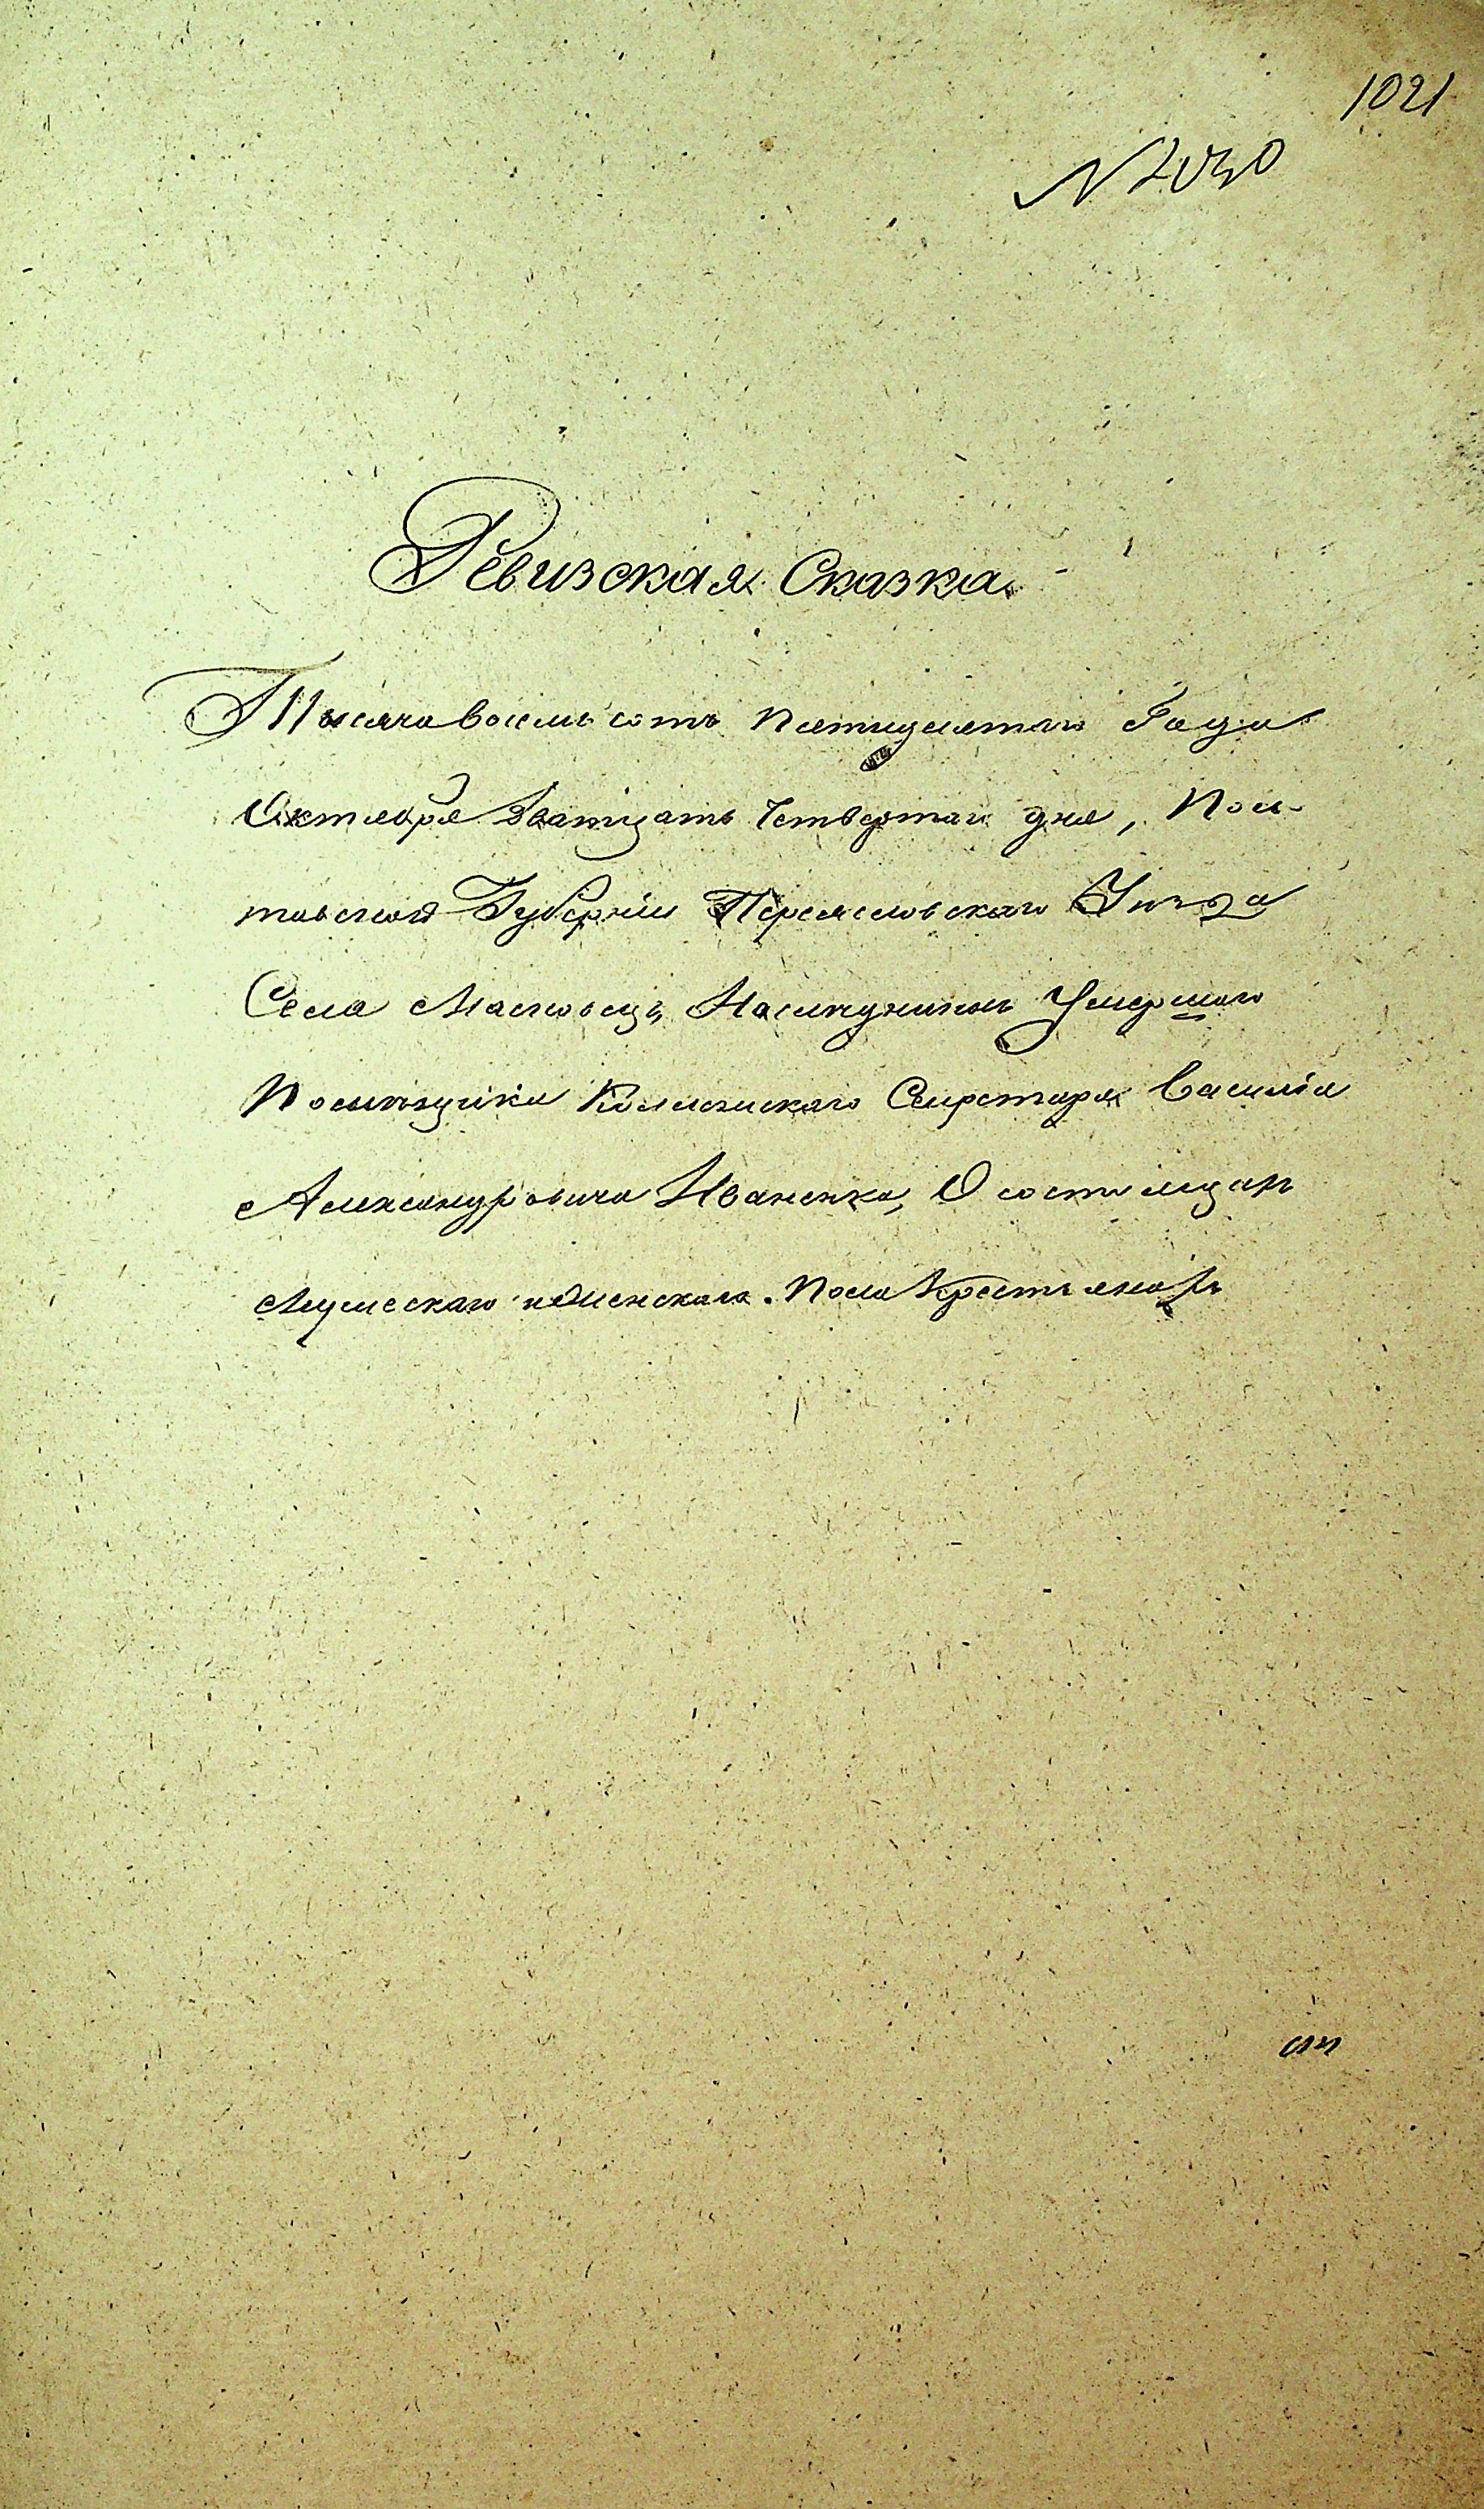 1021
Ревизская Сказка
Тысяча восемь сотъ пятидесятаго Года
Октября дватцать четвертаго дня, Пол-
тавской Губерніи Переясловскаго Уезда
Села Масковецъ Наследников Умершаго
Помѣщика Колежскаго Секретаря Василія
Александровича Иваненка, О состоящихъ
Мужескаго и Женскаго Пола Крестьянахъ